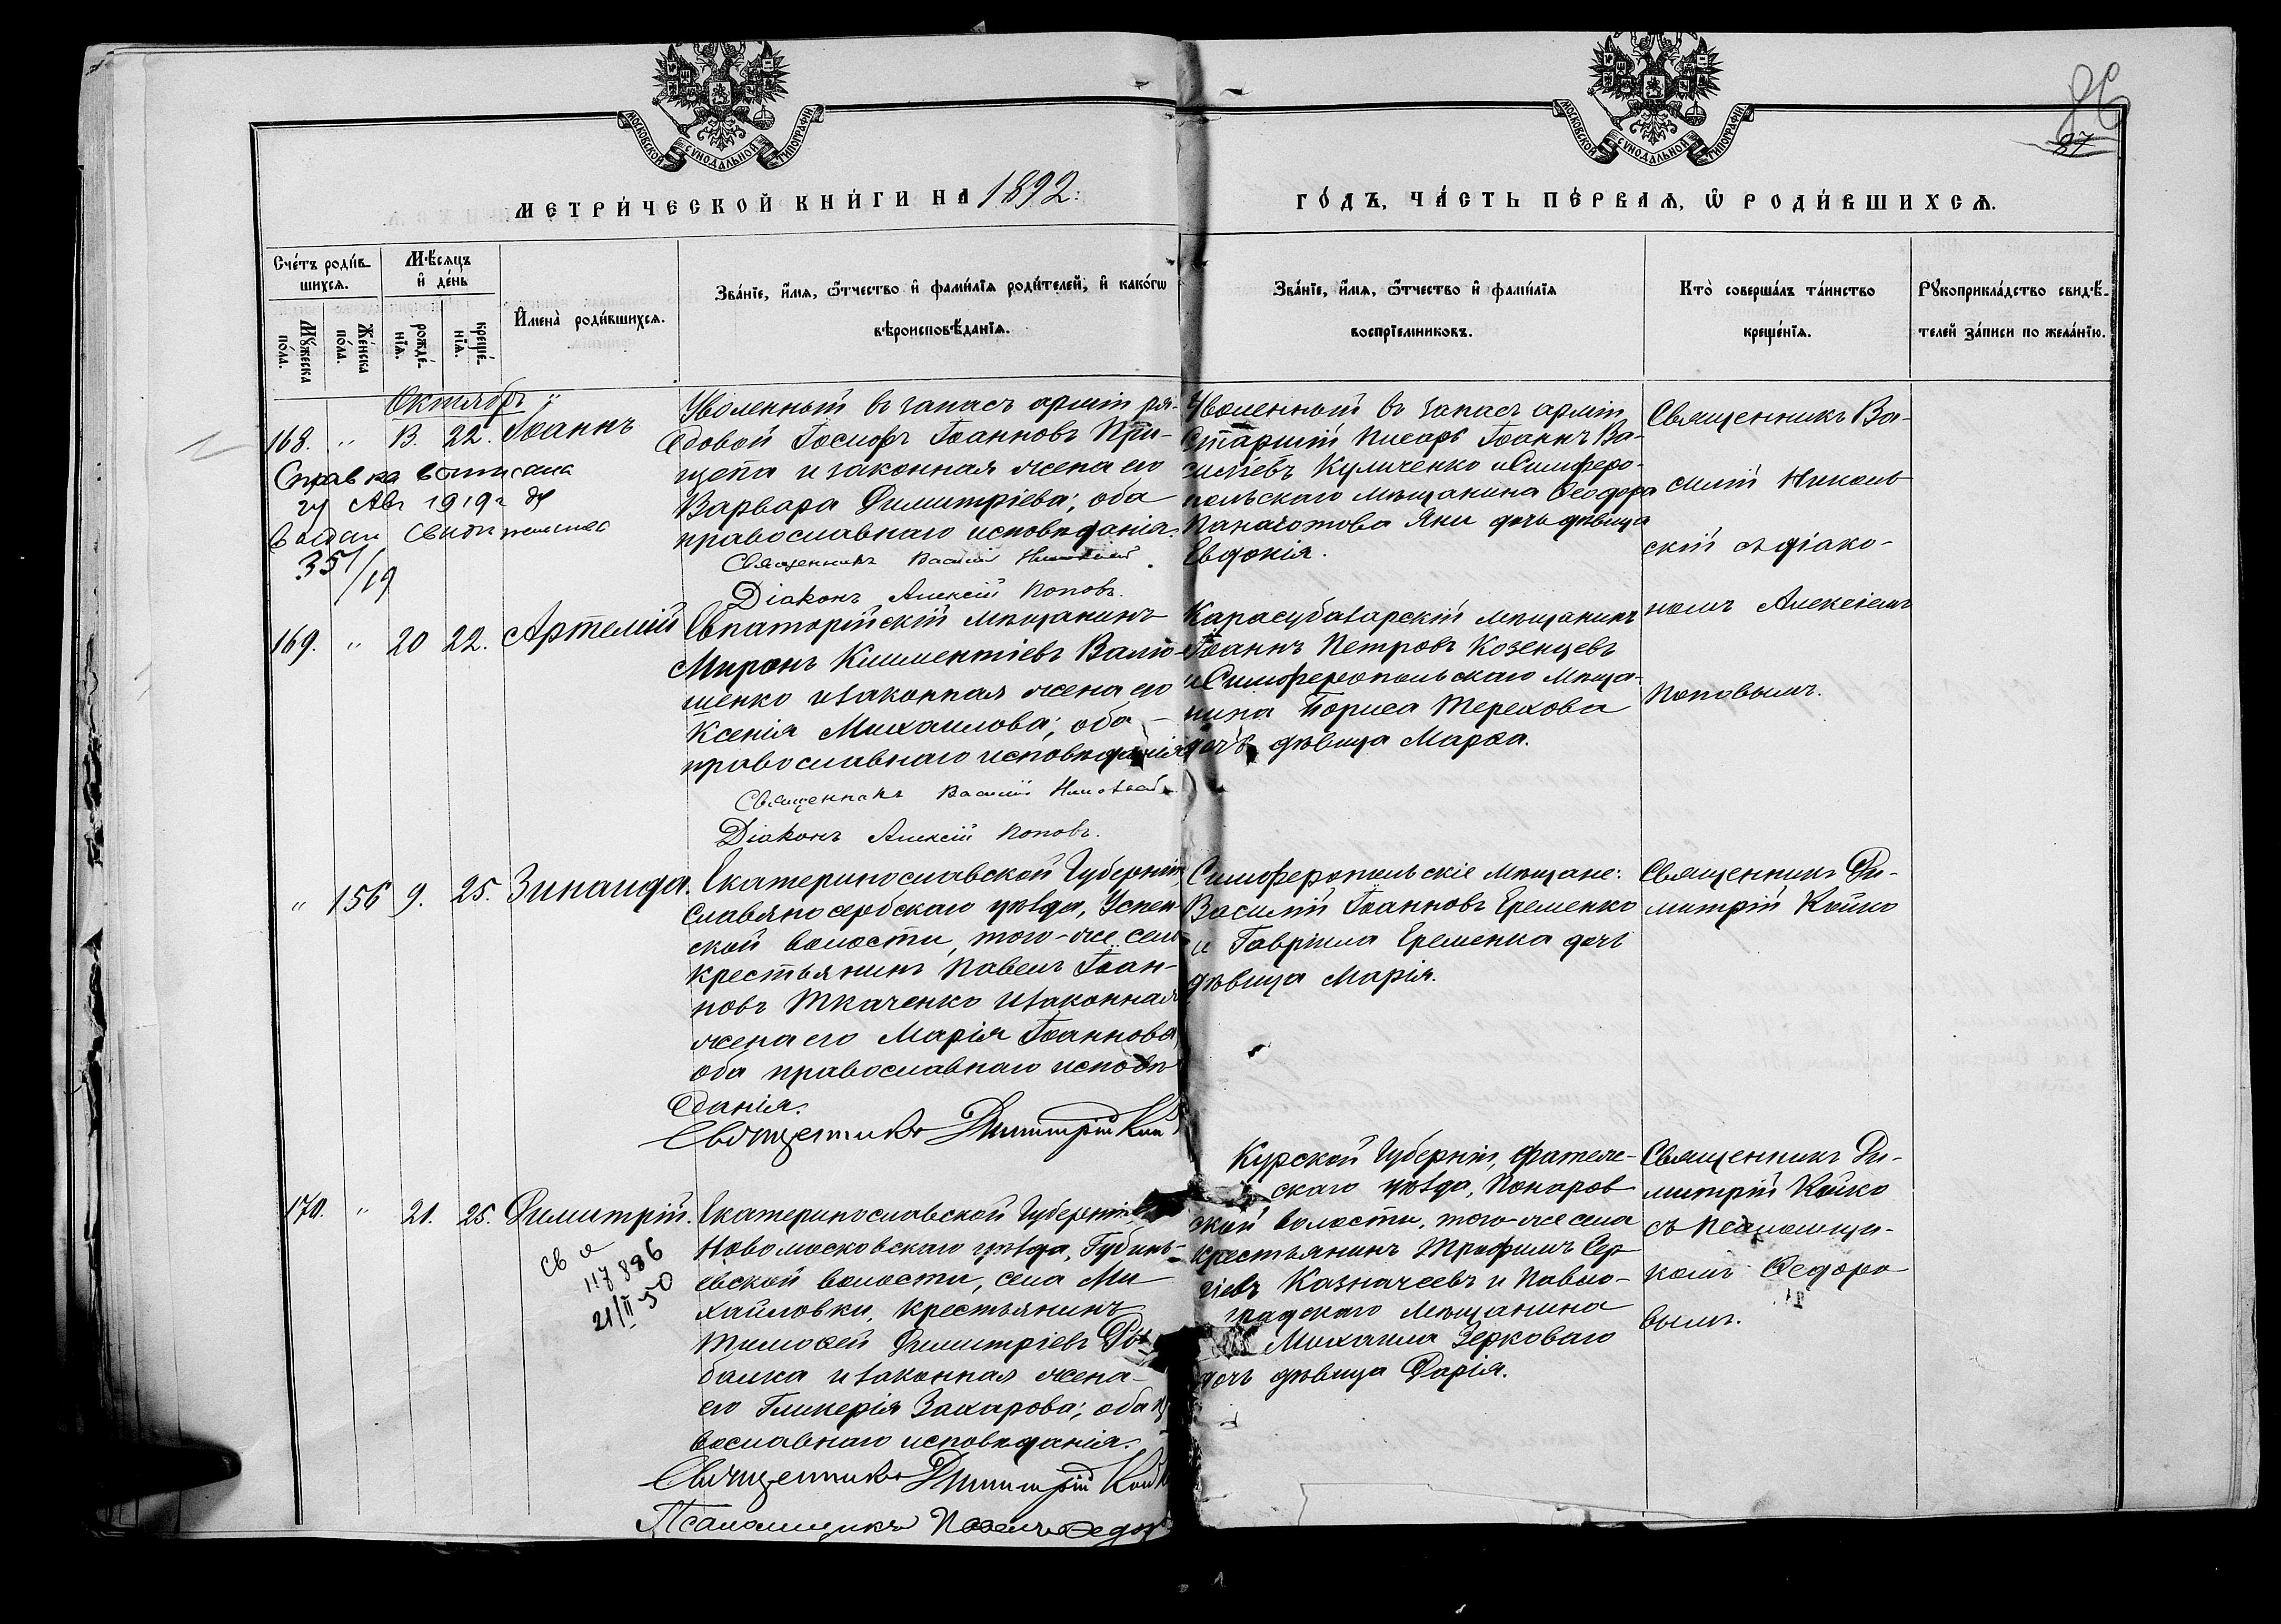 МОСКОВСКОЙ СѴНОДАЛЬНОЙ ТИПОГРАФІИ
МОСКОВСКОЙ СѴНОДАЛЬНОЙ ТИПОГРАФІИ
87
МЕТРИ́ЧЕСКОЙ КНИ́ГИ НА 1892.
ГО́ДЪ, ЧА́СТЬ ПЕ́РВАЯ, Ѿ РОДИ́ВШИХСЯ.
Сче́тъ роди́в-
шихся.
Мѣ́сяцъ
и҆ де́нь
Мꙋ́жеска по́ла.
Же́нска по́ла.
рожде́-
нїя.
креще́-
нїя.
И҆мена̀ роди́вшихся.
Зва́нїе, и҆́мя, ѻ҆́тчество и҆ фами́лїя роди́телей, и҆ како́гѡ
вѣроисповѣ́данїя.
Зва́нїе, и҆́мя, ѻ҆́тчество и҆ фами́лїя
воспрїе́мниковъ.
Кто̀ соверша́лъ та́инство
креще́нїя.
Рꙋкоприкла́дство свидѣ́-
телей за́писи по жела́нїю.
Октябрь
168. " 13. 22. Іоаннъ
Справка
Авг 1919 г
35/19
Уволенный въ запасъ арміи ря-
довой Іосифъ Іоанновъ При-
щепа и законная жена его
Варвара Димитріева; оба
православнаго исповѣданія.
Священникъ Василій
Діаконъ Алексій Поповъ.
Уволенный въ запасъ арміи
Старшій Писарь Іоаннъ Ва-
сильевъ Куличенко и Симферо-
польскаго мѣщанина Ѳеодора
Панаіотова Яни дочь дѣвица
Евдокія.
Священникъ Ва-
силій Николь-
скій съ діако-
номъ Алексіемъ
Поповымъ.
169. " 20 22. Артемій
Евпаторійскій мѣщанинъ
Миронъ Климентіевъ
шенко и законная жена его
Ксенія Михаилова; оба
православнаго исповѣданія
Священникъ Василій
Діаконъ Алексій Поповъ.
Карасубазарскій мѣщанинъ
Іоаннъ Петровъ Козенцевъ
и Симферопольскаго мѣща-
нина Бориса Терехова
дочь дѣвица Марѳа.
" 156 9. 25. Зинаида.
Екатеринославской Губерніи,
Славяносербскаго уѣзда, Успен-
ской волости, того-же села
крестьянинъ Павелъ Іоан-
новъ Ткаченко и законная
жена его Марія Іоаннова,
оба православнаго исповѣ-
данія.
Священникъ Димитрій
Симферопольскіе мѣщане:
Василій Іоанновъ Еременко
и Гавріила Еременка дочь
дѣвица Марія.
Священникъ Ди-
митрій Койко
170. " 21. 25. Димитрій.
117886
21/II 50
Екатеринославской Губерніи
Новомосковскаго уѣзда, Губинъ-
евской волости, села Ми-
хайловки, крестьянинъ
Тимоѳей Димитріевъ
балка и законная жена
его Гликерія Захарова; оба
вославнаго исповѣданія.
Священникъ Димитрій
Псаломщикъ Павелъ
Курской Губерніи, Фатеж-
скаго уѣзда, Понаров
ской волости, того-же села
крестьянинъ Трофимъ Сер-
гіевъ Казначеевъ и Павло-
градскаго мѣщанина
Михаила Зерковаго
дочь дѣвица Дарія.
Священникъ Ди-
митрій Койко
съ Псаломщи-
комъ Ѳедоро-
вымъ.